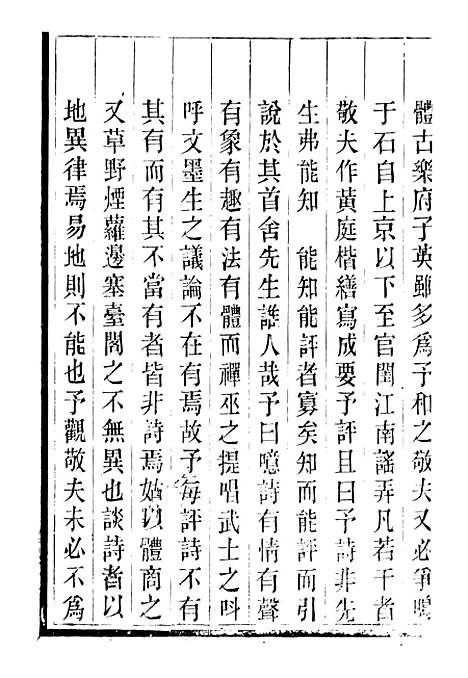 體古樂府子英雖多為予和之敬夫又必爭鳴
于石自上京以下至官閨江南謠弄凡若干者
敬夫作黃庭楷繕寫成要予評且曰予詩非先
生弗能知　能知能評者寡矣知而能評而引
說於其首舍先生誰人哉予曰噫詩有情有聲
有象有趣有法有體而禪巫之提唱武士之叫
呼文墨生之議論不在有焉故予每評詩不有
其有而有其不當有者皆非詩焉姑以體商之
又草野煙蘿邊塞臺閣之不無異也談詩者以
地異律焉易地則不能也予觀敬夫未必不為